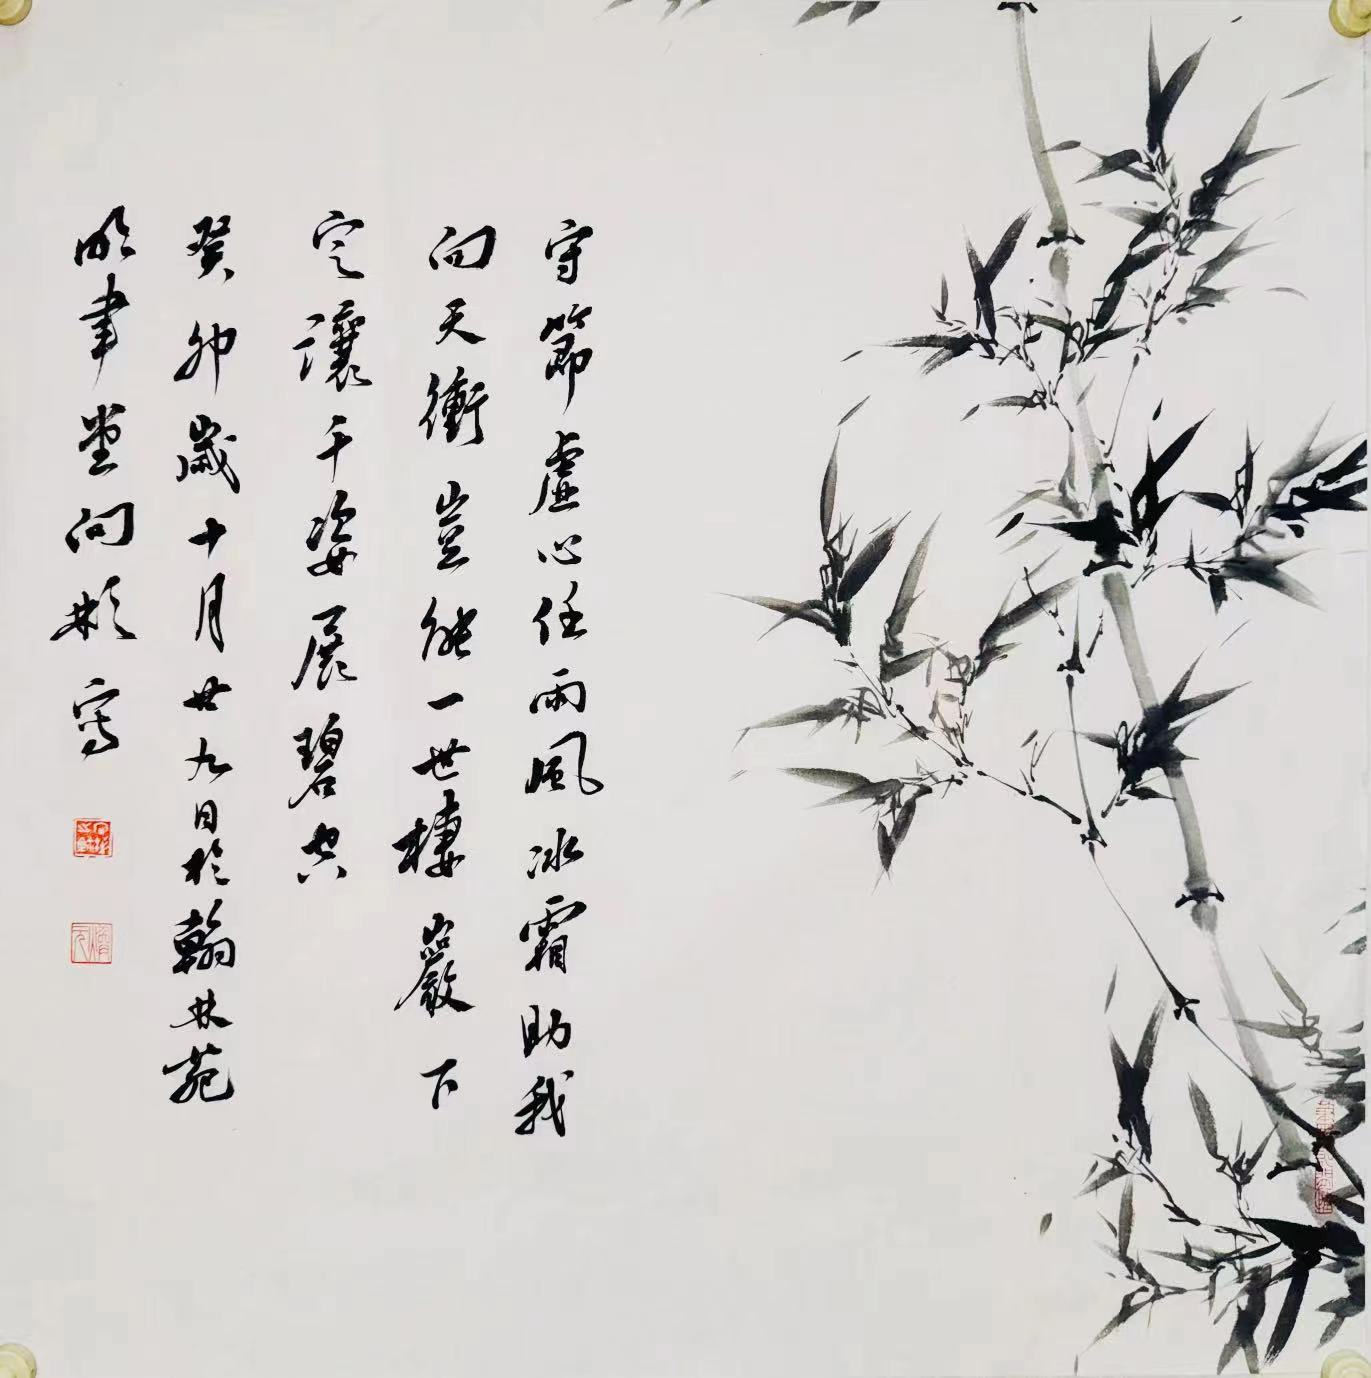 守節虛心任雨風冰霜助我
向天衝豈能一世棲巖下
定讓千姿展碧空
癸卯歲十月廿九日於翰林苑
明聿堂問彬寫